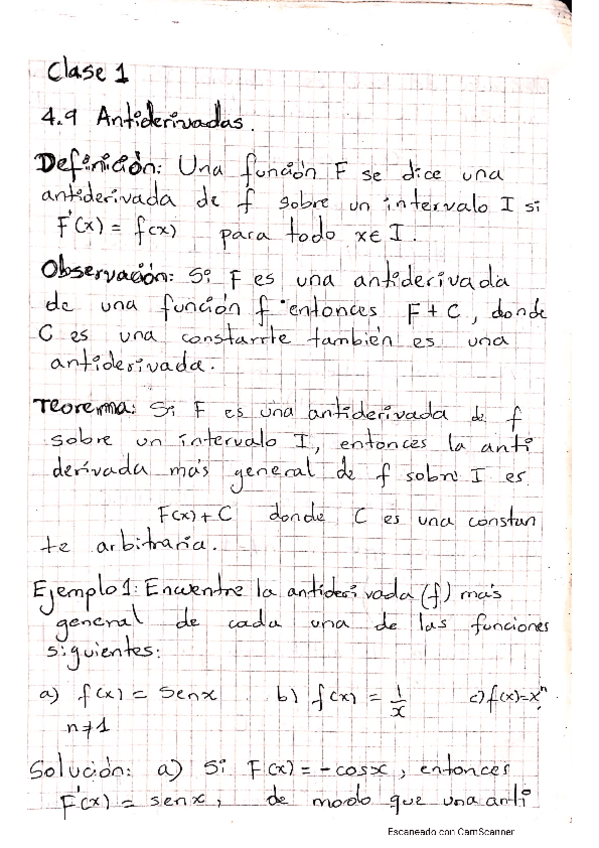 Clase 1
4.9 Antiderivadas.
Definición: Una función F se dice una
antiderivada de f sobre un intervalo I si
F'(x) = f(x) para todo x∈I.
Observación: Si F es una antiderivada
de una función f entonces F + C, donde
C es una constante también es una
antiderivada.
Teorema: Si F es una antiderivada de f
sobre un intervalo I, entonces la anti
derivada más general de f sobre I es
F(x) + C donde C es una constan
te arbitraria.
Ejemplo 1: Encuentre la antiderivada (f) más
general de cada una de las funciones
siguientes:
a) f(x) = senx b) f(x) = 1/x c) f(x)=xⁿ,
n≠1
Solución: a) Si F(x) = -cosx, entonces
F'(x) = senx, de modo que una anti
Escaneado con CamScanner